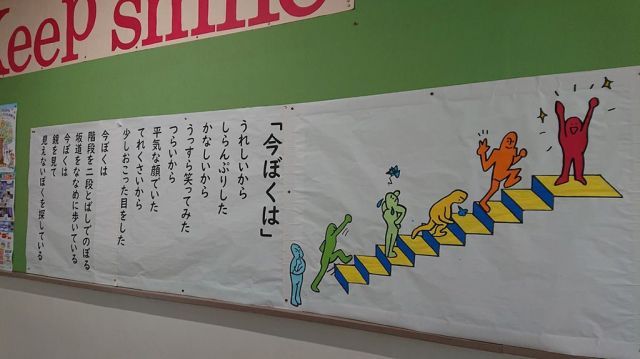 Keep smile
「今ぼくは」
うれしいから
しらんぷりした
かなしいから
うっすら笑ってみた
つらいから
平気な顔でいた
てれくさいから
少しおこった目をした
今ぼくは
階段を二段とばしでのぼる
坂道をななめに歩いている
今ぼくは
鏡を見て
見えないぼくを探している